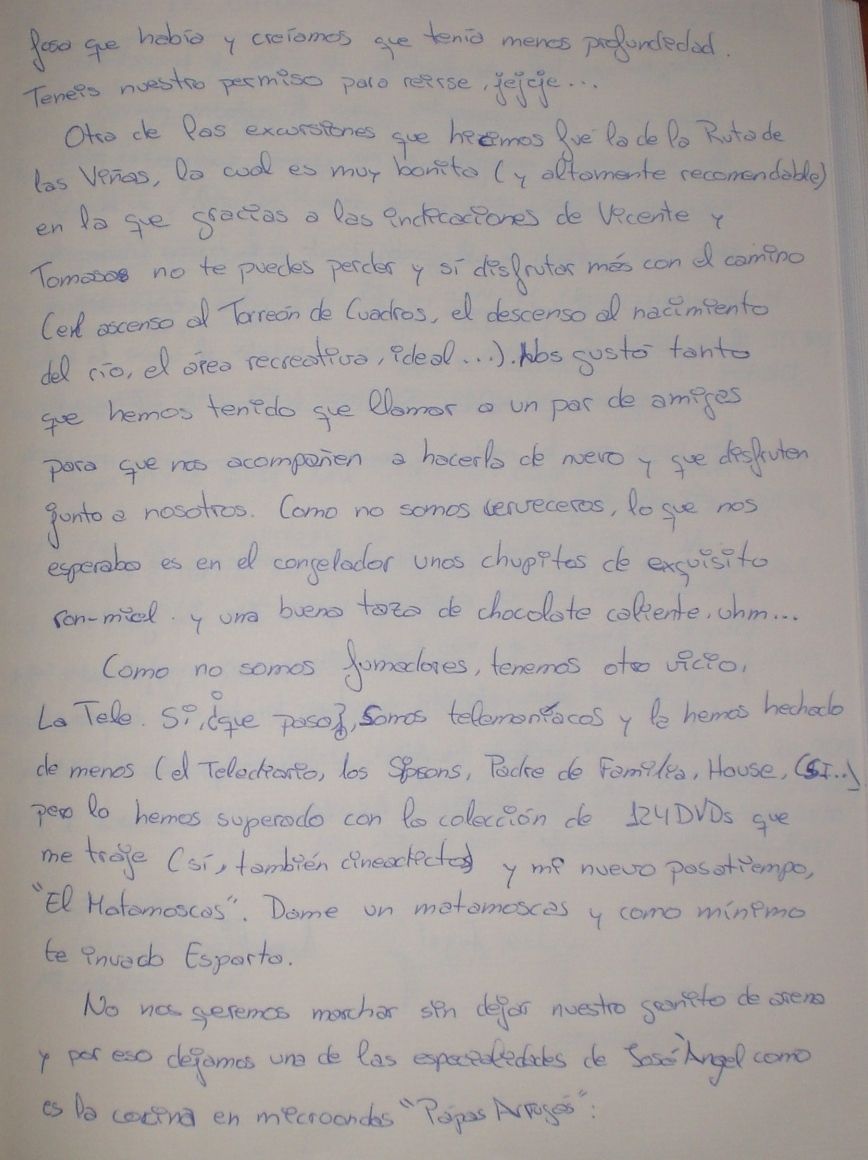 fosa que había y creíamos que tenía menos profundedad.
Teneis nuestro permiso para reirse, jejeje...
Otra de las excursiones que hicemos fué la de la Ruta de
las Viñas, la cual es muy bonita (y altamente recomendable)
en la que gracias a las indicaciones de Vicente y
Tomasa no te puedes perder y sí disfrutar más con el camino
(el ascenso al Torreón de Cuadros, el descenso al nacimiento
del río, el área recreativa, ideal...). Nos gustó tanto
que hemos tenido que llamar a un par de amigas
para que nos acompañen a hacerla de nuevo y que disfruten
junto a nosotros. Como no somos cerveceros, lo que nos
esperaba es en el congelador unos chupitos de exquisito
ron-miel. y una buena taza de chocolate caliente. uhm...
Como no somos fumadores, tenemos otro vicio,
La Tele. Si, ¿que pasa?, Somos telemaníacos y la hemos hechado
de menos (el Telediario, los Sipsons, Padre de Familia, House, CSI..)
pero lo hemos superado con la colección de 124 DVDs que
me traje (sí, también cineadictos) y mi nuevo pasatiempo,
"El Matamoscas". Dame un matamoscas y como mínimo
te invado Esparta.
No nos queremos marchar sin dejar nuestro granito de arena
y por eso dejamos una de las especialidades de José Ángel como
es la cocina en microondas "Papas Arrugás":